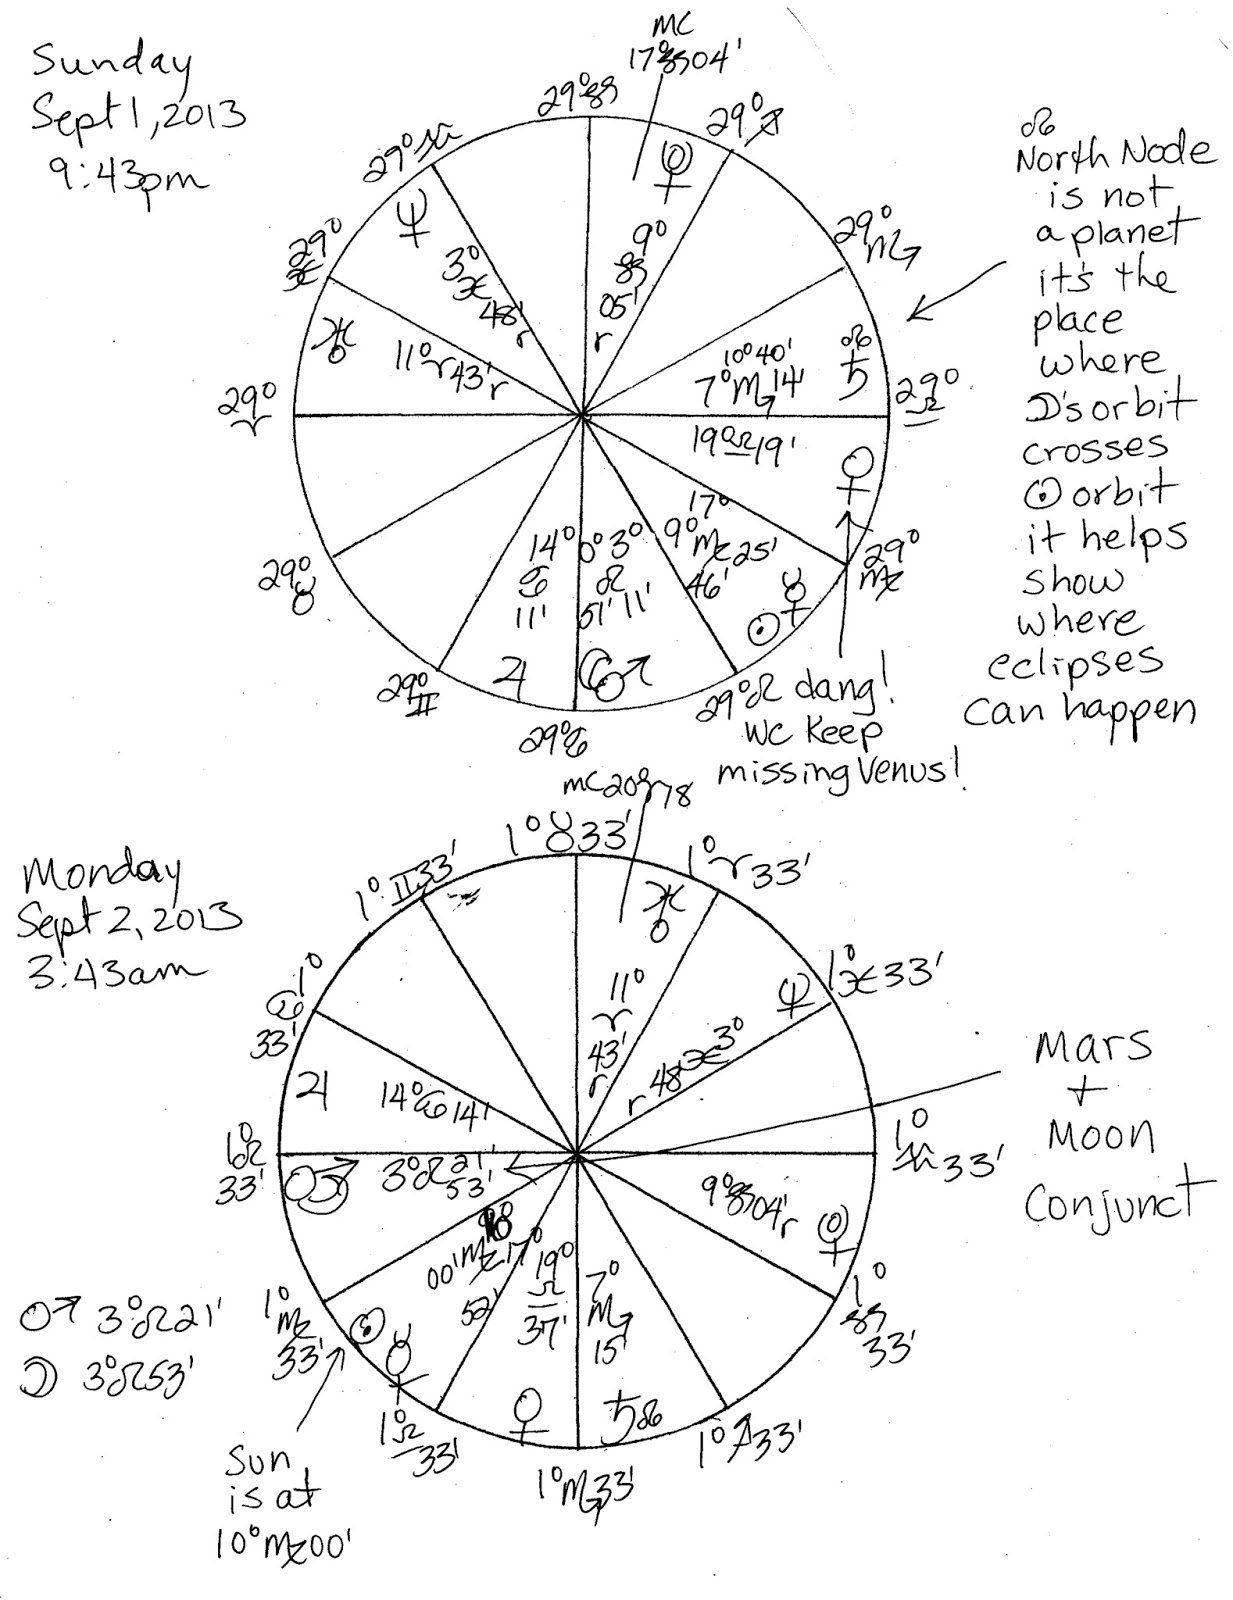 Sunday
Sept 1, 2013
9:43pm
MC
17°♑04'
29°♑
29°♐
29°♒
29°♏
29°
♓
29°
♈
29°
♉
29°
♊
29°♋
29°♌
29°
♍
29°
♎
♆
3°
♓
48'
r
♀
9°
♑
05'
r
11°♈43'r
10°40'
7°♏14'
☊
♄
19♎19'
♀
17°
9°♍25'
46'
☿
☉
14°
♋
11'
♃
0° 3°
♌
51' 11'
☽♂
☊
North Node
is not
a planet
it's the
place
where
☽'s orbit
crosses
☉ orbit
it helps
show
where
eclipses
can happen
dang!
we keep
missing Venus!
Monday
Sept 2, 2013
3:43am
MC 20♈78
1°♉33'
1°♈33'
1°♊33'
1°♓33'
1°
♋
33'
1°
♌
33'
1°
♒33'
1°
♑
33'
1°♐33'
1°♏33'
1°
♎
33'
1°
♍
33'
♅
11°
♈
43'
r
♆
r 48'♓3°
♃
14°♋14'
♂☽
3°♌21'
53'
9°♑04'r
00'♍17°
52'
☉
☿
19°
♎
37'
♀
7°
♏
15'
♄☊
Mars
+
Moon
Conjunct
♂ 3°♌21'
☽ 3°♌53'
Sun
is at
10°♍00'